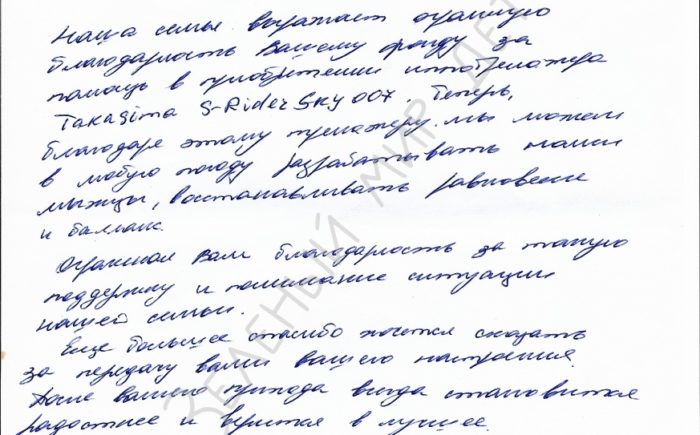 Наша семья выражает огромную
благодарность Вашему фонду за
помощь в приобретении иппотренажера
Takasima S-Rider Sky 007. Теперь,
благодаря этому тренажеру, мы можем
в любую погоду разрабатывать наши
мышцы, восстанавливать равновесие
и баланс.
Огромная Вам благодарность за такую
поддержку и понимание ситуации
нашей семьи.
Еще большее спасибо хочется сказать
за передачу вами вашего настроения.
После вашего прихода всегда становится
радостнее и верится в лучшее.
ЗЕЛЕНЫЙ МИР ДЕТ